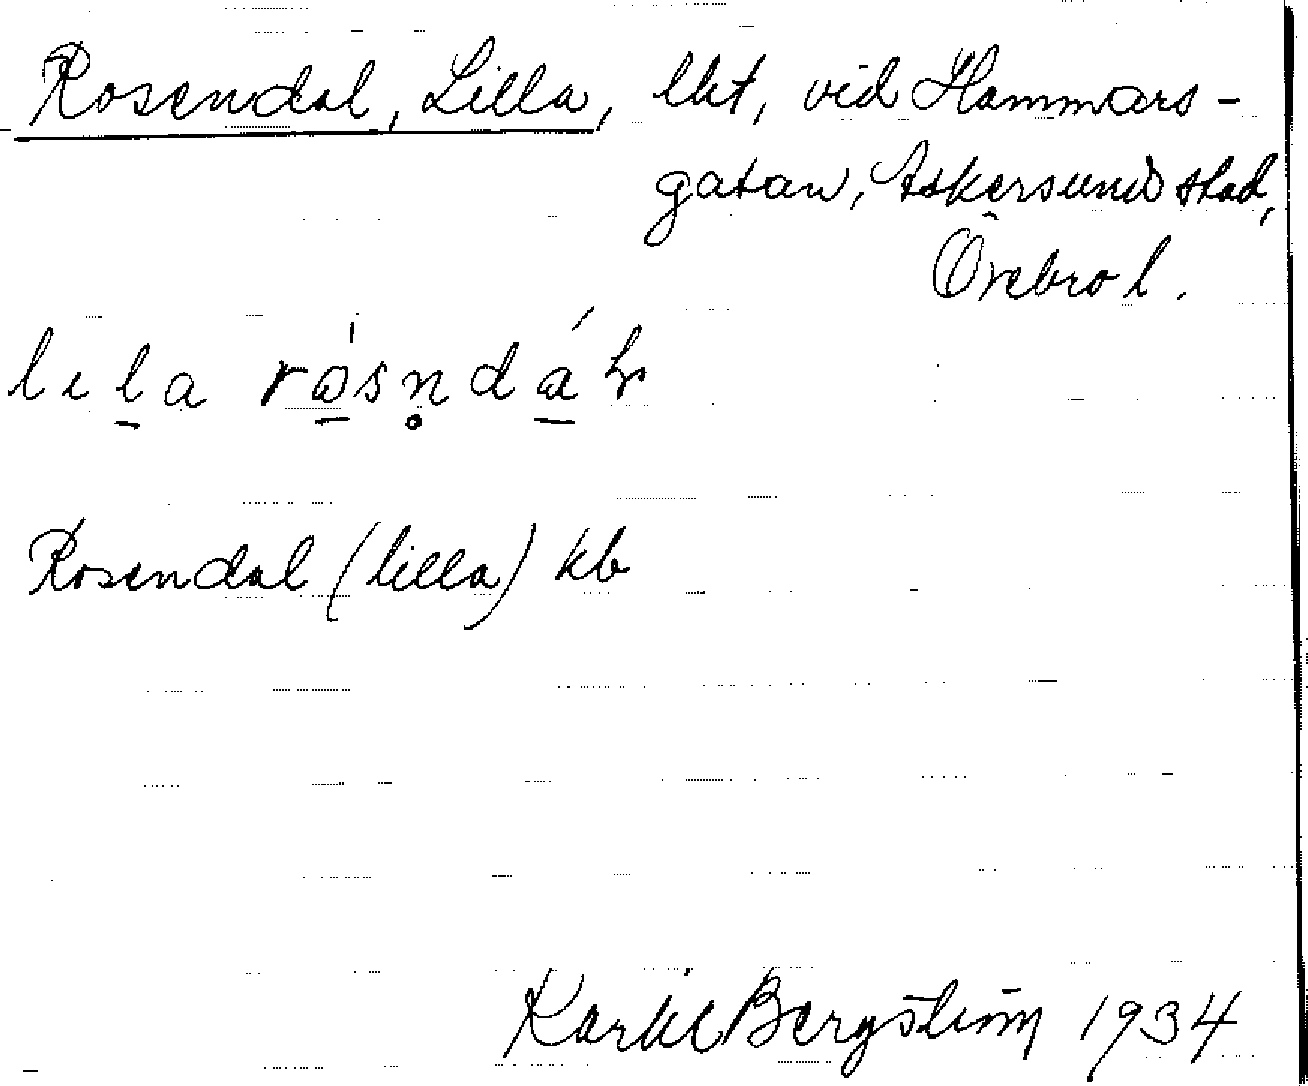 Rosendal, Lilla, lht, vid Hammars-
gatan, Askersund stad,
Örebro l.
lıl̠a rɷ̠́sn̥dá̠
Rosendal (lilla) kb
Bergström 1934